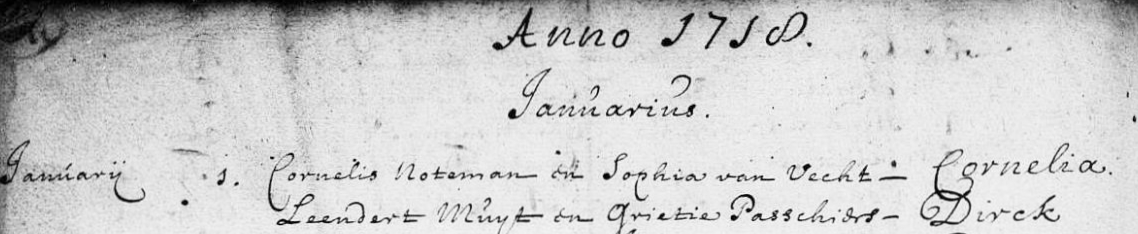 Anno 1718.
Januarius.
Januarij 1. Cornelis Noteman en Sophia van Vecht – Cornelia.
Leendert Muyt en Grietie Passchiers – Dirck